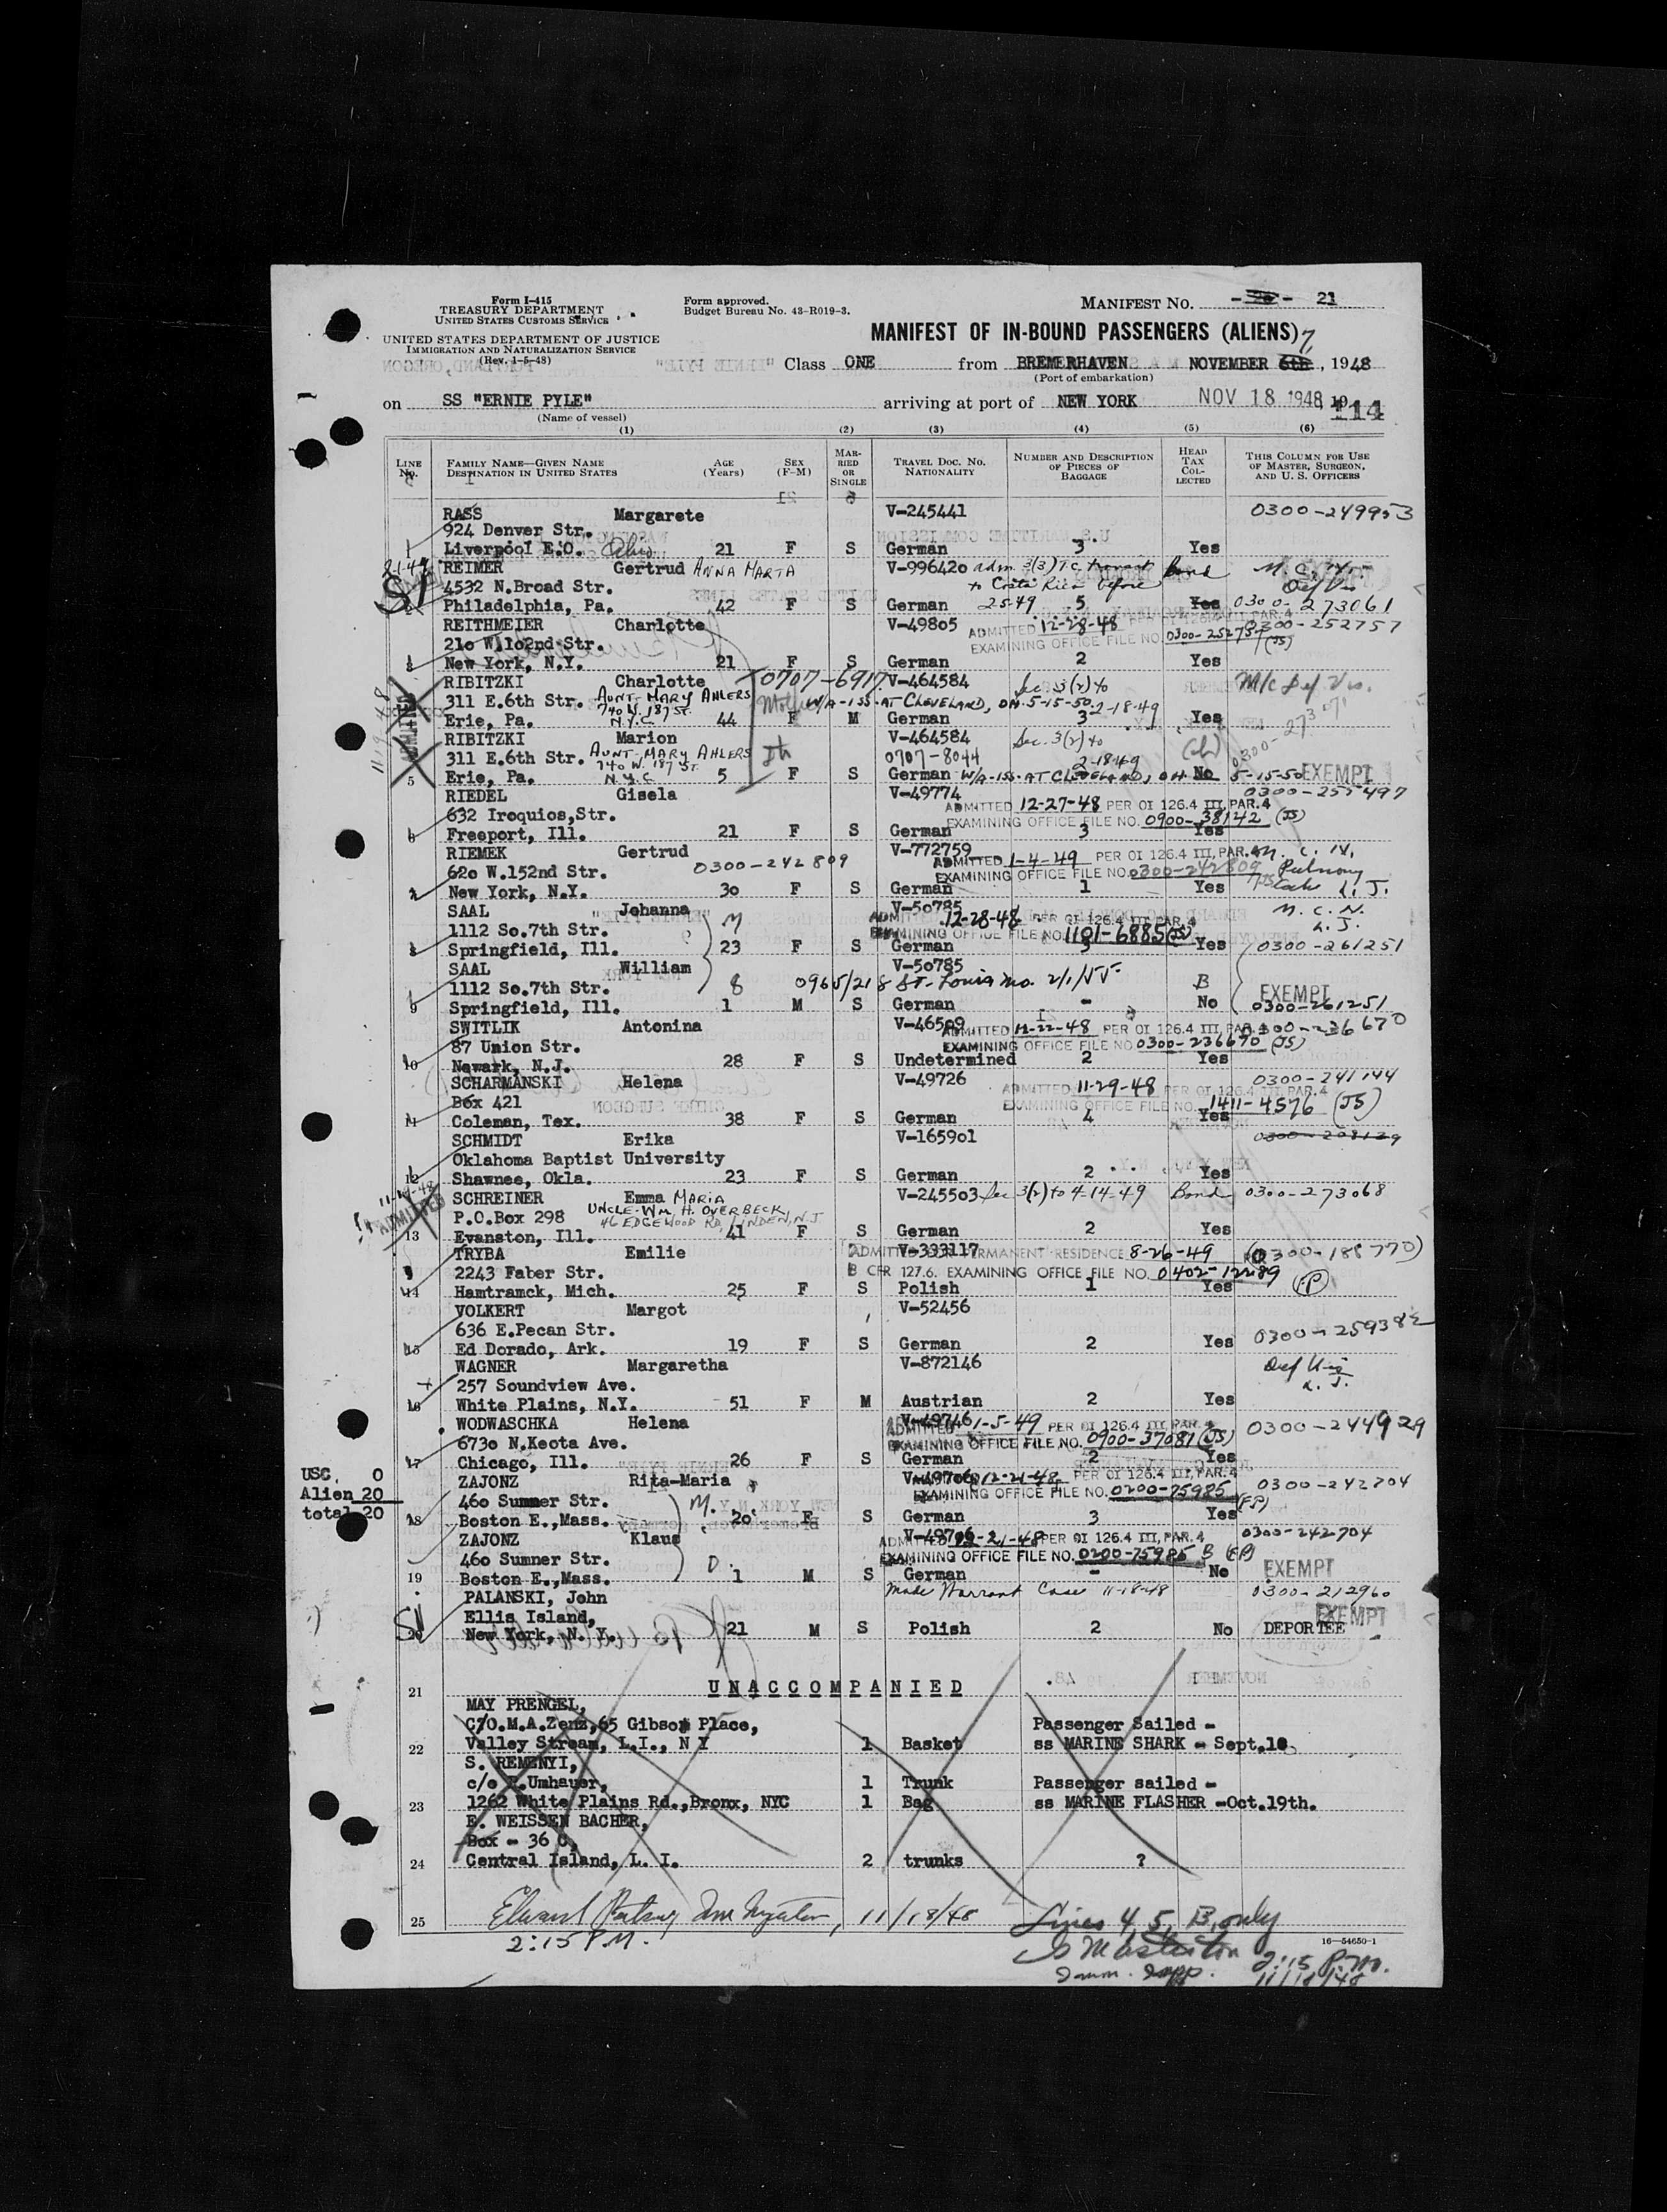 Form I-415
TREASURY DEPARTMENT
UNITED STATES CUSTOMS SERVICE
UNITED STATES DEPARTMENT OF JUSTICE
IMMIGRATION AND NATURALIZATION SERVICE
(Rev. 1-5-48)
Form approved.
Budget Bureau No. 43-R019-3.
MANIFEST NO. 21
MANIFEST OF IN-BOUND PASSENGERS (ALIENS)
Class ONE from BREMERHAVEN NOVEMBER 6th 7, 1948
(Port of embarkation)
on SS "ERNIE PYLE" arriving at port of NEW YORK NOV 18 1948, 19
(Name of vessel)
114
(1) (2) (3) (4) (5) (6)
LINE NO. FAMILY NAME—GIVEN NAME DESTINATION IN UNITED STATES AGE (Years) SEX (F-M) MARRIED OR SINGLE TRAVEL DOC. NO. NATIONALITY NUMBER AND DESCRIPTION OF PIECES OF BAGGAGE HEAD TAX COLLECTED THIS COLUMN FOR USE OF MASTER, SURGEON, AND U. S. OFFICERS
RASS Margarete V-245441 0300-249953
924 Denver Str.
1 Liverpool E.O. Ohio 21 F S German 3 Yes
REIMER Gertrud ANNA MARTA V-996420 adm. 3(3) T.C. transit Bond
SI 4532 N.Broad Str. to Costa Rica before
Philadelphia, Pa. 42 F S German 2-5-49 5 Yes 0300-273061
REITHMEIER Charlotte V-49805 ADMITTED 12-28-48 PAR.4 0300-252757
210 W.102nd Str. EXAMINING OFFICE FILE NO. 0300-252757 (JS)
3 New York, N.Y. 21 F S German 2 Yes
RIBITZKI Charlotte 0707-6917 V-464584 Sec. 3(2) to M/c Def Vis.
311 E.6th Str. AUNT-MARY AHLERS 740 W. 187 ST. W/A-ISS-AT CLEVELAND, OH-5-15-50 2-18-49
Erie, Pa. N.Y.C. 44 F M German 3 Yes
ADMITTED
RIBITZKI Marion V-464584 Sec. 3(2) to
311 E.6th Str. AUNT-MARY AHLERS 740 W. 187 ST. 0707-8044 2-18-49
5 Erie, Pa. N.Y.C. 5 F S German W/A-ISS-AT CLEVELAND, OH No 5-15-50 EXEMPT
RIEDEL Gisela V-49774
632 Iroquios,Str. ADMITTED 12-27-48 PER OI 126.4 III, PAR.4
EXAMINING OFFICE FILE NO. 0900-38142 (JS)
6 Freeport, Ill. 21 F S German 3 Yes
RIEMEK Gertrud V-772759
620 W.152nd Str. 0300-242809 ADMITTED 1-4-49 PER OI 126.4 III, PAR.4
EXAMINING OFFICE FILE NO. 0300-242809
New York, N.Y. 30 F S German 1 Yes
SAAL Johanna M V-50785 M.C.N.
1112 So.7th Str. ADMITTED 12-28-48 PER OI 126.4 III PAR.4
EXAMINING OFFICE FILE NO. 1101-6885 (JS)
8 Springfield, Ill. 23 F S German 3 Yes 0300-261251
SAAL William V-50785
1112 So.7th Str. 8 0965/218 St. Louis Mo. 2/1/55 B EXEMPT
9 Springfield, Ill. 1 M S German - No 0300-261251
SWITLIK Antonina V-46509 ADMITTED 12-22-48 PER OI 126.4 III, PAR.4 0300-236670
87 Union Str. EXAMINING OFFICE FILE NO. 0300-236670 (JS)
10 Newark, N.J. 28 F S Undetermined 2 Yes
SCHARMANSKI Helena V-49726 0300-241144
Box 421 ADMITTED 11-29-48 PER OI 126.4 III, PAR.4
EXAMINING OFFICE FILE NO. 1411-4576 (JS)
11 Coleman, Tex. 38 F S German 4 Yes
SCHMIDT Erika V-165901
Oklahoma Baptist University
12 Shawnee, Okla. 23 F S German 2 Yes
SCHREINER Emma MARIA V-245503 Sec 3(2) to 4-14-49 Bond 0300-273068
ADMITTED P.O.Box 298 UNCLE-WM. H. OVERBECK 46 EDGEWOOD RD, LINDEN, N.J.
13 Evanston, Ill. 41 F S German 2 Yes
TRYBA Emilie V-333117 ADMITTED PERMANENT RESIDENCE 8-26-49 (0300-188770)
2243 Faber Str. 8 CFR 127.6. EXAMINING OFFICE FILE NO. 0402-12289
14 Hamtramck, Mich. 25 F S Polish 1 Yes (FP)
VOLKERT Margot V-52456
636 E.Pecan Str.
15 Ed Dorado, Ark. 19 F S German 2 Yes 0300-259382
WAGNER Margaretha V-872146
257 Soundview Ave.
16 White Plains, N.Y. 51 F M Austrian 2 Yes
WODWASCHKA Helena V-49746 ADMITTED 1-5-49 PER OI 126.4 III, PAR.4 0300-244929
6730 N.Keota Ave. EXAMINING OFFICE FILE NO. 0900-37081 (JS)
17 Chicago, Ill. 26 F S German 2 Yes
USC. 0
Alien 20
total 20
ZAJONZ Rita-Maria V-49706 12-21-48 PER OI 126.4 III, PAR.4 0300-242704
460 Sumner Str. M. EXAMINING OFFICE FILE NO. 0200-75985 (FP)
18 Boston E.,Mass. 20 F S German 3 Yes
ZAJONZ Klaus V-49706 ADMITTED 12-21-48 PER OI 126.4 III, PAR.4 0300-242704
460 Sumner Str. EXAMINING OFFICE FILE NO. 0200-75985 B (FP) EXEMPT
19 Boston E.,Mass. 1 M S German - No
PALANSKI, John Made Warrant Case 11-18-48 0300-212960
SI Ellis Island, EXEMPT
20 New York, N. Y. 21 M S Polish 2 No DEPORTEE
21 UNACCOMPANIED
MAY PRENGEL,
C/O.M.A.Zenz,65 Gibson Place, Passenger Sailed -
22 Valley Stream, L.I., N Y 1 Basket ss MARINE SHARK - Sept.10
S. REMENYI,
c/o R.Umhauer, 1 Trunk Passenger sailed -
23 1262 White Plains Rd.,Bronx, NYC 1 Bag ss MARINE FLASHER -Oct.19th.
E. WEISSEN BACHER,
Box - 36 C,
24 Central Island, L. I. 2 trunks ?
25 11/18/48 Lines 4, 5, 13, only
2:15 P.M.
16-54650-1
Imm. Insp. 2:15 P.M.
11/18/48